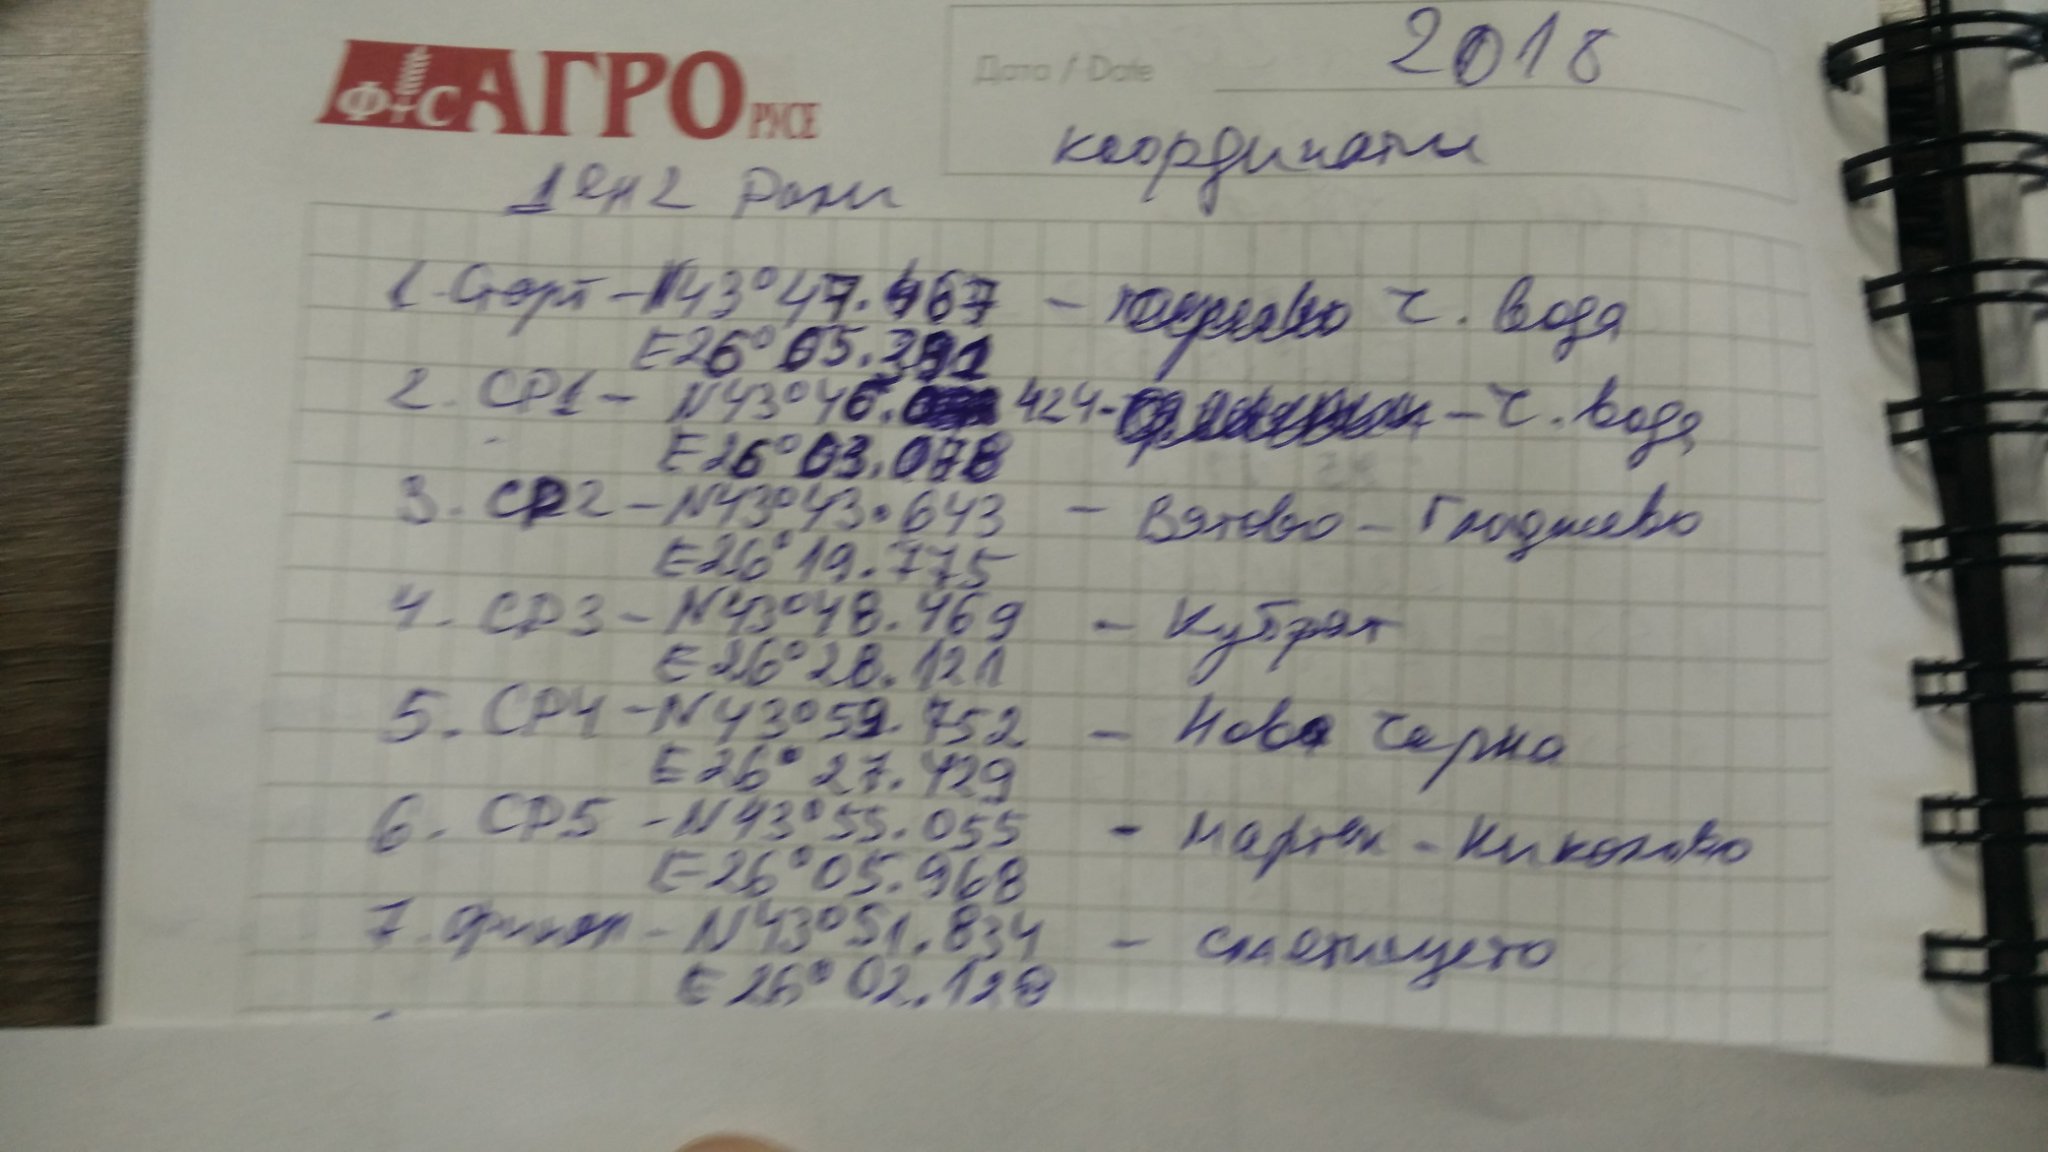 Ф+С АГРО РУСЕ
Дата / Date 2018
координати
1. Старт - N43°47.467 - Ч. вода
E26°05.391
2. CP1 - N43°46. 424 - Ч. вода
E26°03.078
3. CP2 - N43°43.643 - Вятово - Глоджево
E26°19.775
4. CP3 - N43°48.469 - Кубрат
E26°28.121
5. CP4 - N43°59.752 - Нова Черна
E26°27.429
6. CP5 - N43°55.055 - Мартен - Николово
E26°05.968
7. финал - N43°51.834 - сметището
E26°02.129